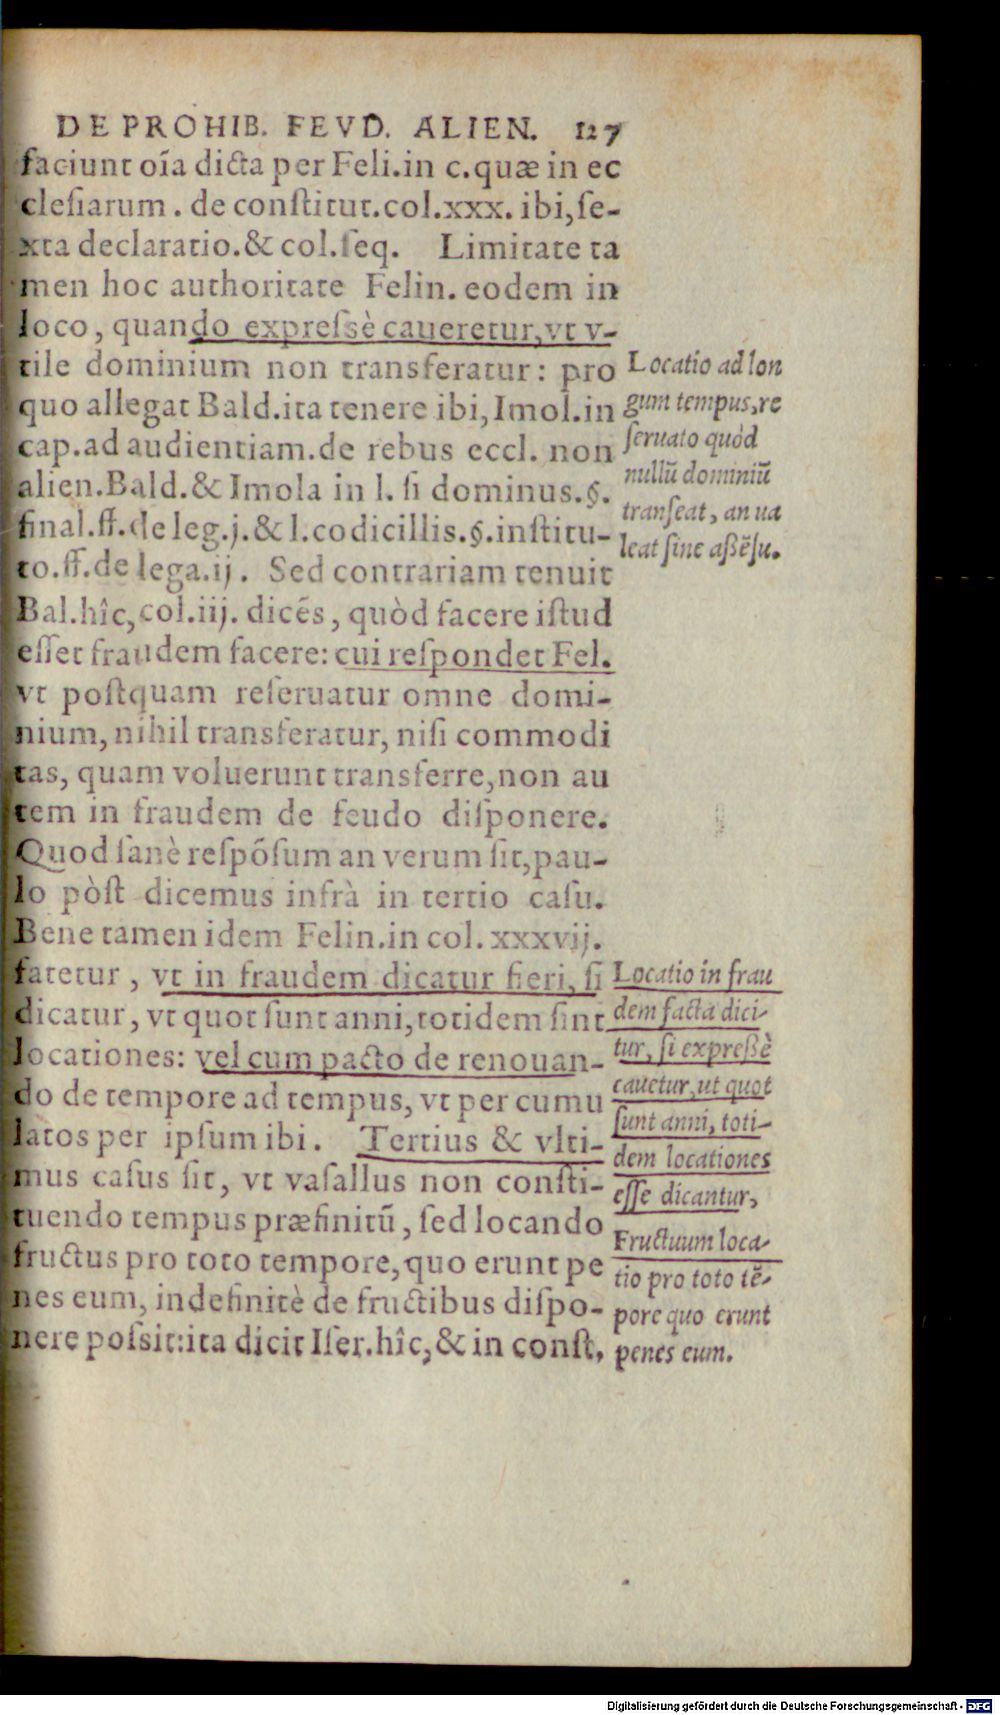 DE PROHIB. FEVD. ALIEN. 127
faciunt oīa dicta per Feli.in c.quæ in ec
clesiarum . de constitut.col.xxx. ibi,se-
xta declaratio.& col.seq. Limitate ta
men hoc authoritate Felin. eodem in
loco, quando expressè caueretur,vt v-
tile dominium non transferatur: pro
quo allegat Bald.ita tenere ibi,Imol.in
cap.ad audientiam.de rebus eccl. non
alien.Bald.& Imola in l. si dominus.§.
final.ff.de leg.j.& l.codicillis.§.institu-
to.ff.de lega.ij. Sed contrariam tenuit
Bal.hîc,col.iij. dicēs, quòd facere istud
esset fraudem facere: cui respondet Fel.
vt postquam reseruatur omne domi-
nium, nihil transferatur, nisi commodi
tas, quam voluerunt transferre,non au
tem in fraudem de feudo disponere.
Quod sanè respōsum an verum sit,pau-
lo pòst dicemus infrà in tertio casu.
Bene tamen idem Felin.in col. xxxvij.
fatetur , vt in fraudem dicatur fieri, si
dicatur, vt quot sunt anni,totidem sint
locationes: vel cum pacto de renouan-
do de tempore ad tempus, vt per cumu
latos per ipsum ibi. Tertius & vlti-
mus casus sit, vt vasallus non consti-
tuendo tempus præfinitū, sed locando
fructus pro toto tempore,quo erunt pe
nes eum, indefinitè de fructibus dispo-
nere possit:ita dicit Iser.hîc,& in const.
Locatio ad lon
gum tempus,re
seruato quòd
nullū dominiū
transeat, an ua
leat sine aßēsu.
Locatio in frau
dem facta dici-
tur, si expreßè
cauetur,ut quot
sunt anni, toti-
dem locationes
esse dicantur,
Fructuum loca-
tio pro toto tē-
pore quo erunt
penes eum.
Digitalisierung gefördert durch die Deutsche Forschungsgemeinschaft - DFG